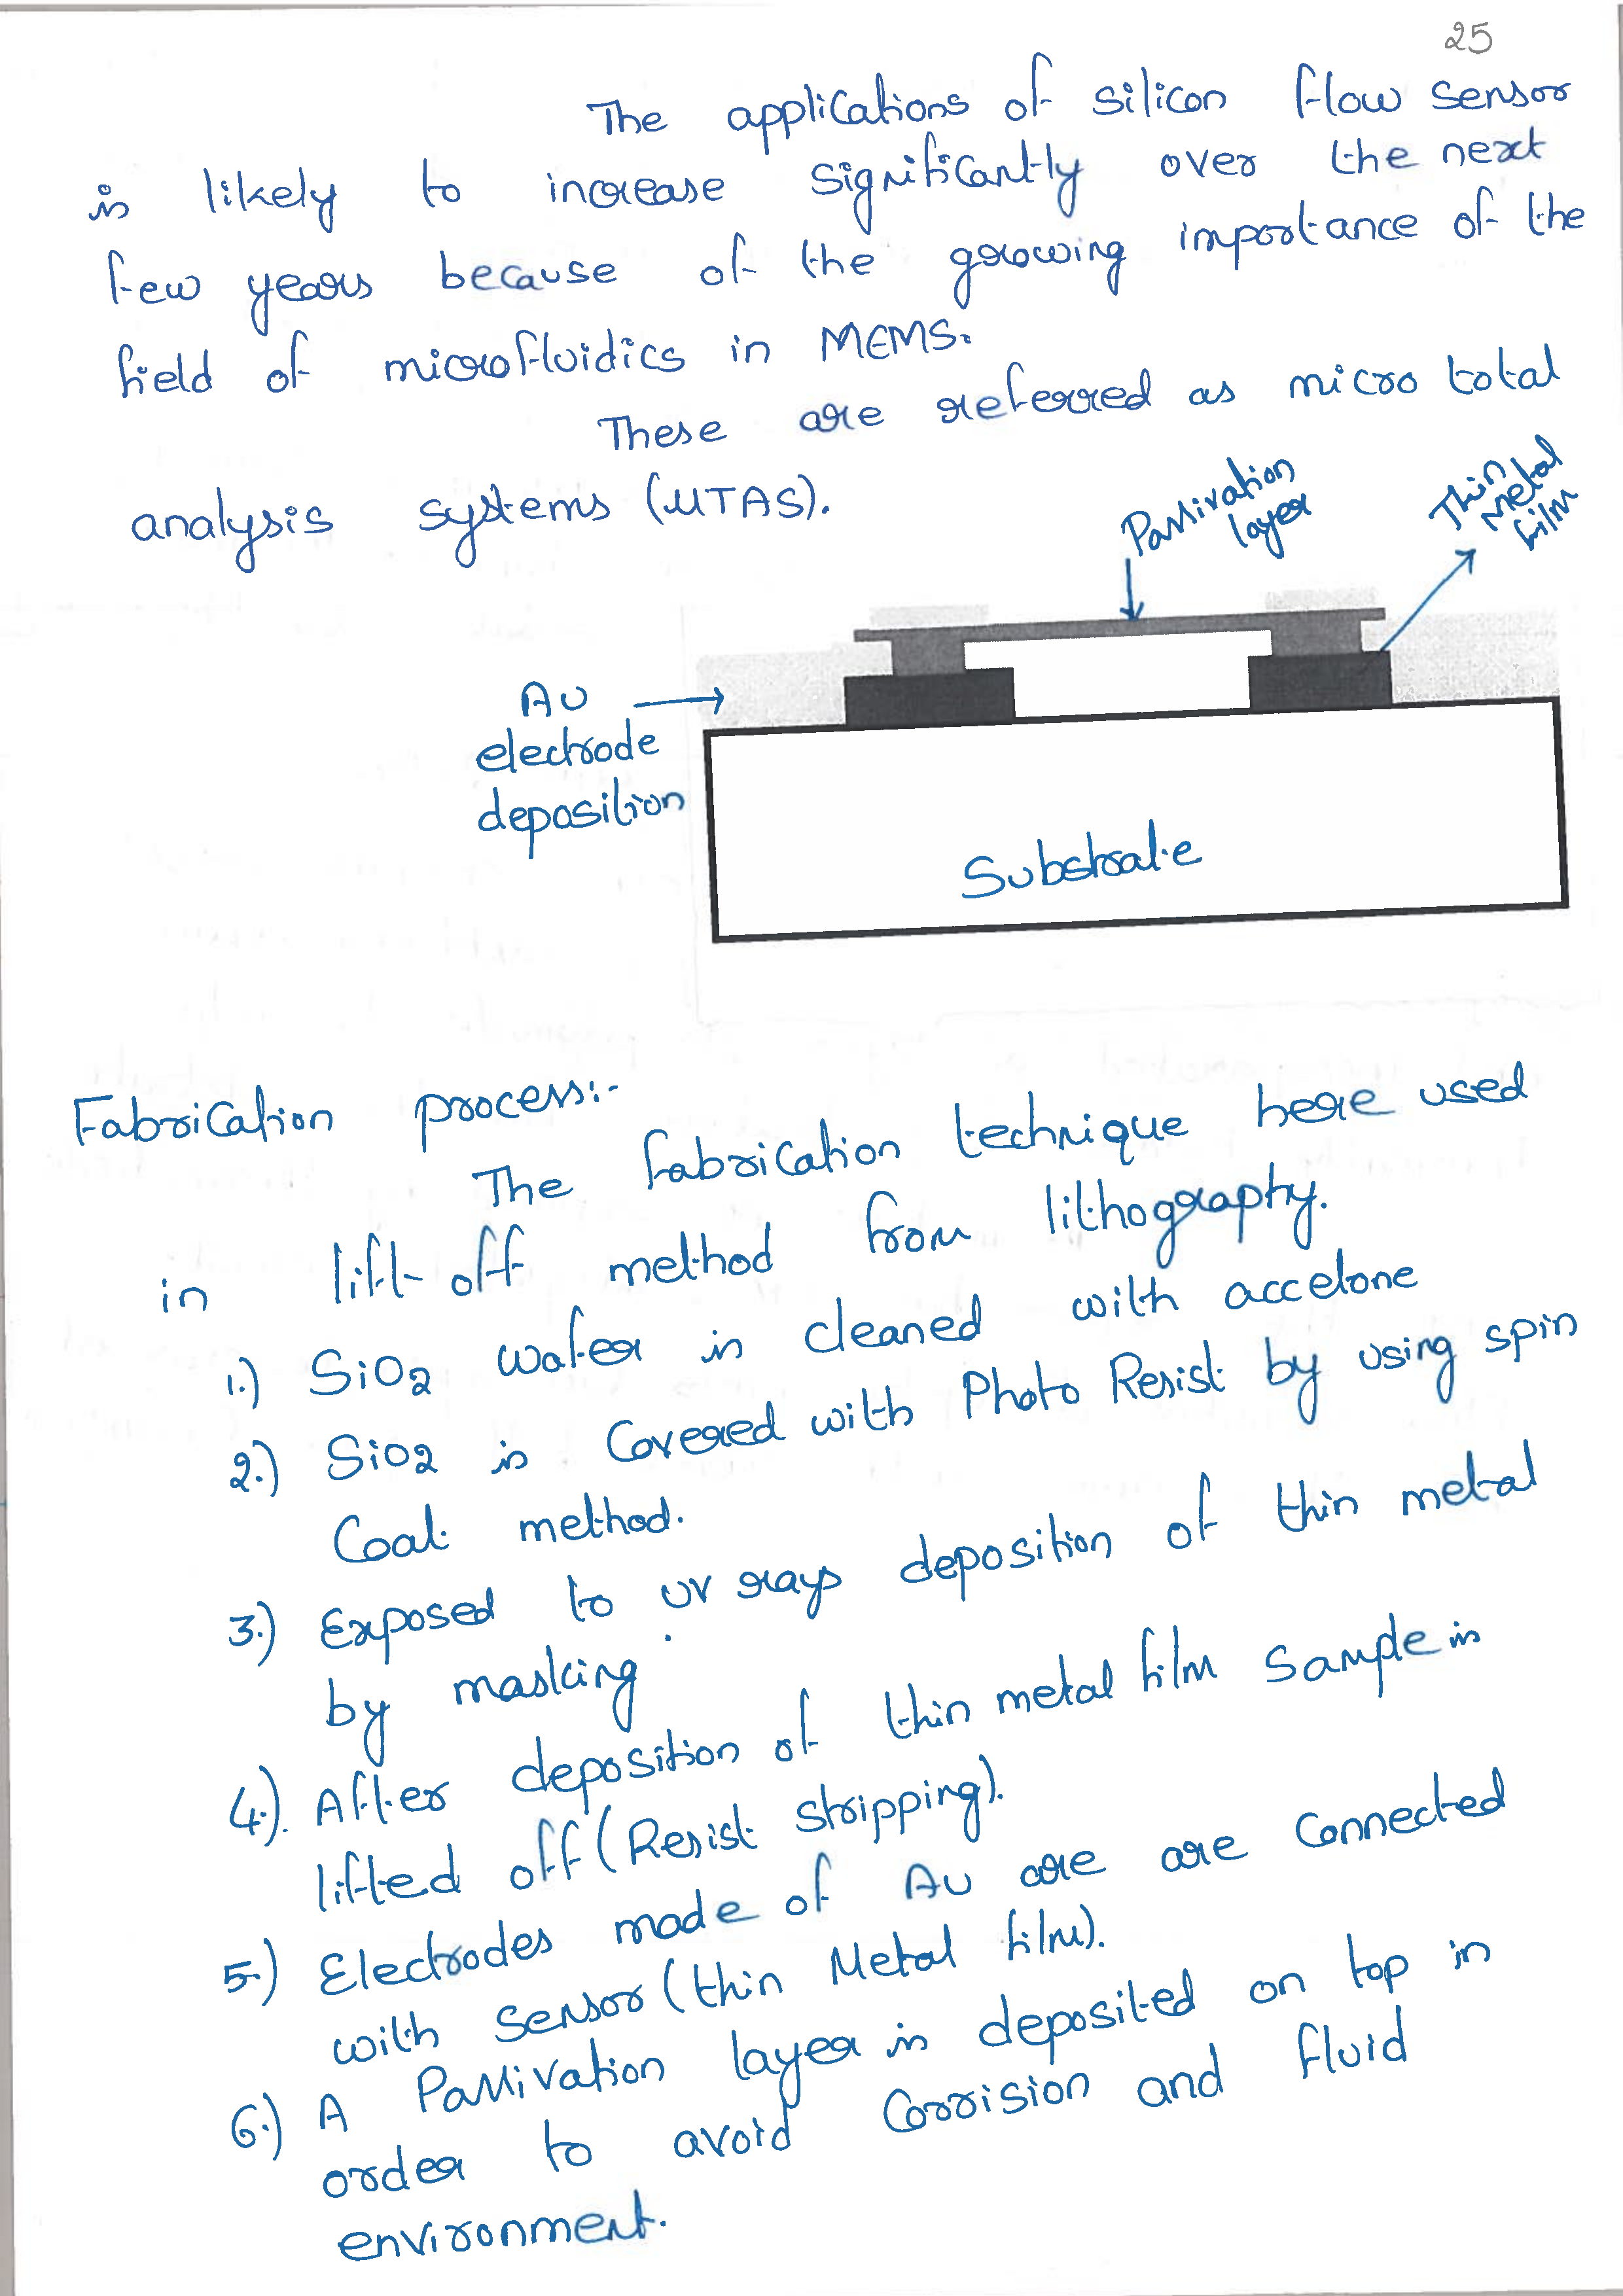 25
The applications of silicon flow sensor
is likely to increase significantly over the next
few years because of the growing importance of the
field of microfluidics in MEMS.
These are referred as micro total
analysis systems (μTAS).
Passivation
layer
Thin
Metal
film
Au
electrode
deposition
Substrate
Fabrication process:-
The fabrication technique here used
in lift-off method from lithography.
1.) SiO2 wafer is cleaned with accetone
2.) SiO2 is Covered with Photo Resist by using spin
Coat method.
3.) Exposed to UV rays deposition of thin metal
by masking.
4.). After deposition of thin metal film Sample is
lifted off (Resist stripping).
5.) Electrodes made of Au are are Connected
with Sensor (thin Metal film).
6.) A Passivation layer is deposited on top in
order to avoid Corrision and fluid
environment.